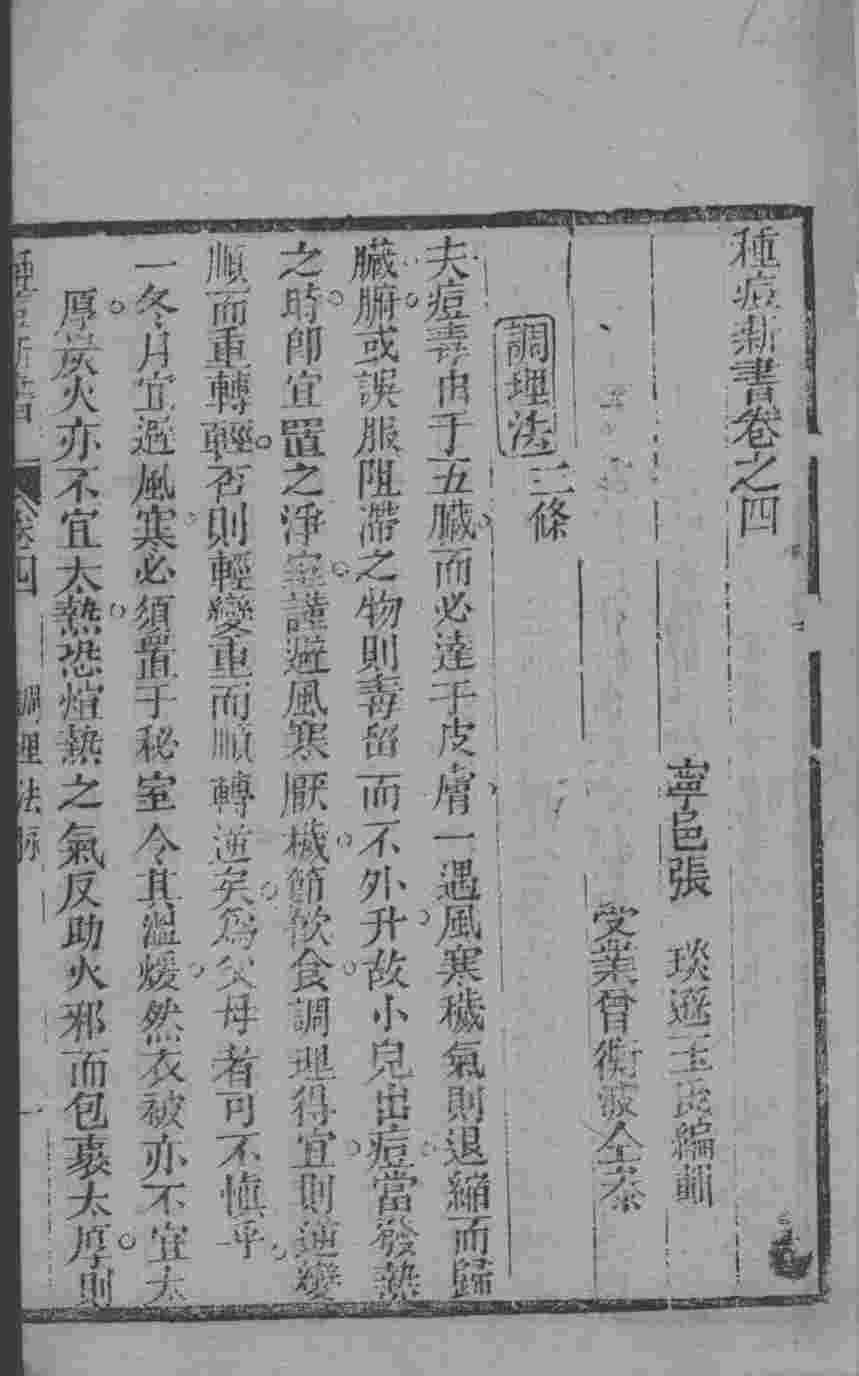 種痘新書卷之四
寧邑張 琰遜玉氏編輯
受業曾衡波仝叅
調理法 三條
夫痘毒由于五臟而必達于皮膚一遇風寒穢氣則退縮而歸
臟腑或誤服阻滯之物則毒留而不外升故小兒出痘當發熱
之時卽宜置之淨室謹避風寒厭穢節飲食調理得宜則逆變
順而重轉輕否則輕變重而順轉逆矣爲父母者可不愼乎
一冬月宜避風寒必須置于秘室令其溫煖然衣被亦不宜太
厚炭火亦不宜太熱恐煊熱之氣反助火邪而包裹太厚則
種痘新書 卷四 調理法 一